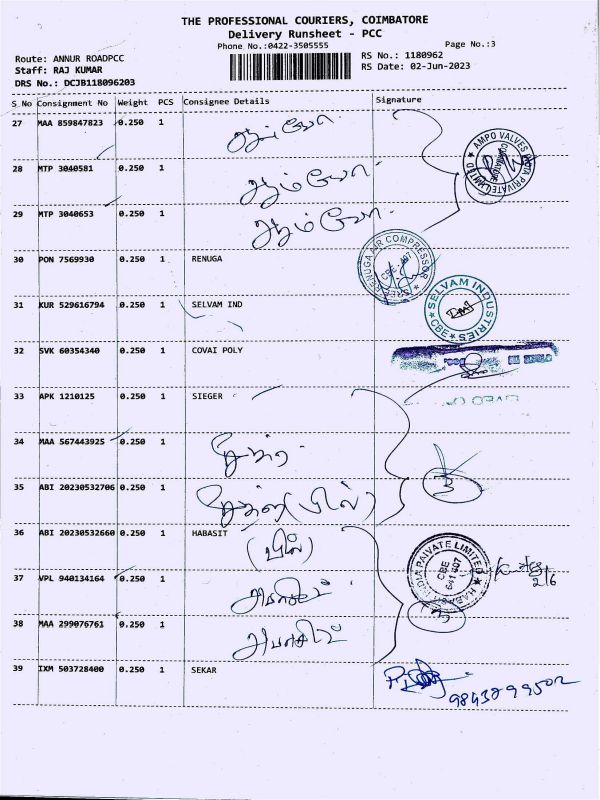 THE PROFESSIONAL COURIERS, COIMBATORE
Delivery Runsheet - PCC
Phone No.:0422-3505555
Page No.:3
Route: ANNUR ROADPCC
RS No.: 1180962
Staff: RAJ KUMAR
RS Date: 02-Jun-2023
DRS No.: DCJB118096203
S_No Consignment No Weight PCS Consignee Details Signature
27 MAA 859847823 0.250 1
AMPO VALVES INDIA PRIVATE LIMITED
COIMBATORE
28 MTP 3040581 0.250 1
29 MTP 3040653 0.250 1
30 PON 7569930 0.250 1 RENUGA
RENUGA AIR COMPRESSOR
31 KUR 529616794 0.250 1 SELVAM IND
SELVAM INDUSTRIES
CBE
32 SVK 60354340 0.250 1 COVAI POLY
33 APK 1210125 0.250 1 SIEGER
34 MAA 567443925 0.250 1
35 ABI 20230532706 0.250 1
(பில்)
36 ABI 20230532660 0.250 1 HABASIT
(பில்)
INDIA PAIVATE LIMITED
CBE
641 407
37 VPL 940134164 0.250 1
2/6
38 MAA 299076761 0.250 1
39 IXM 503728400 0.250 1 SEKAR
9843299502